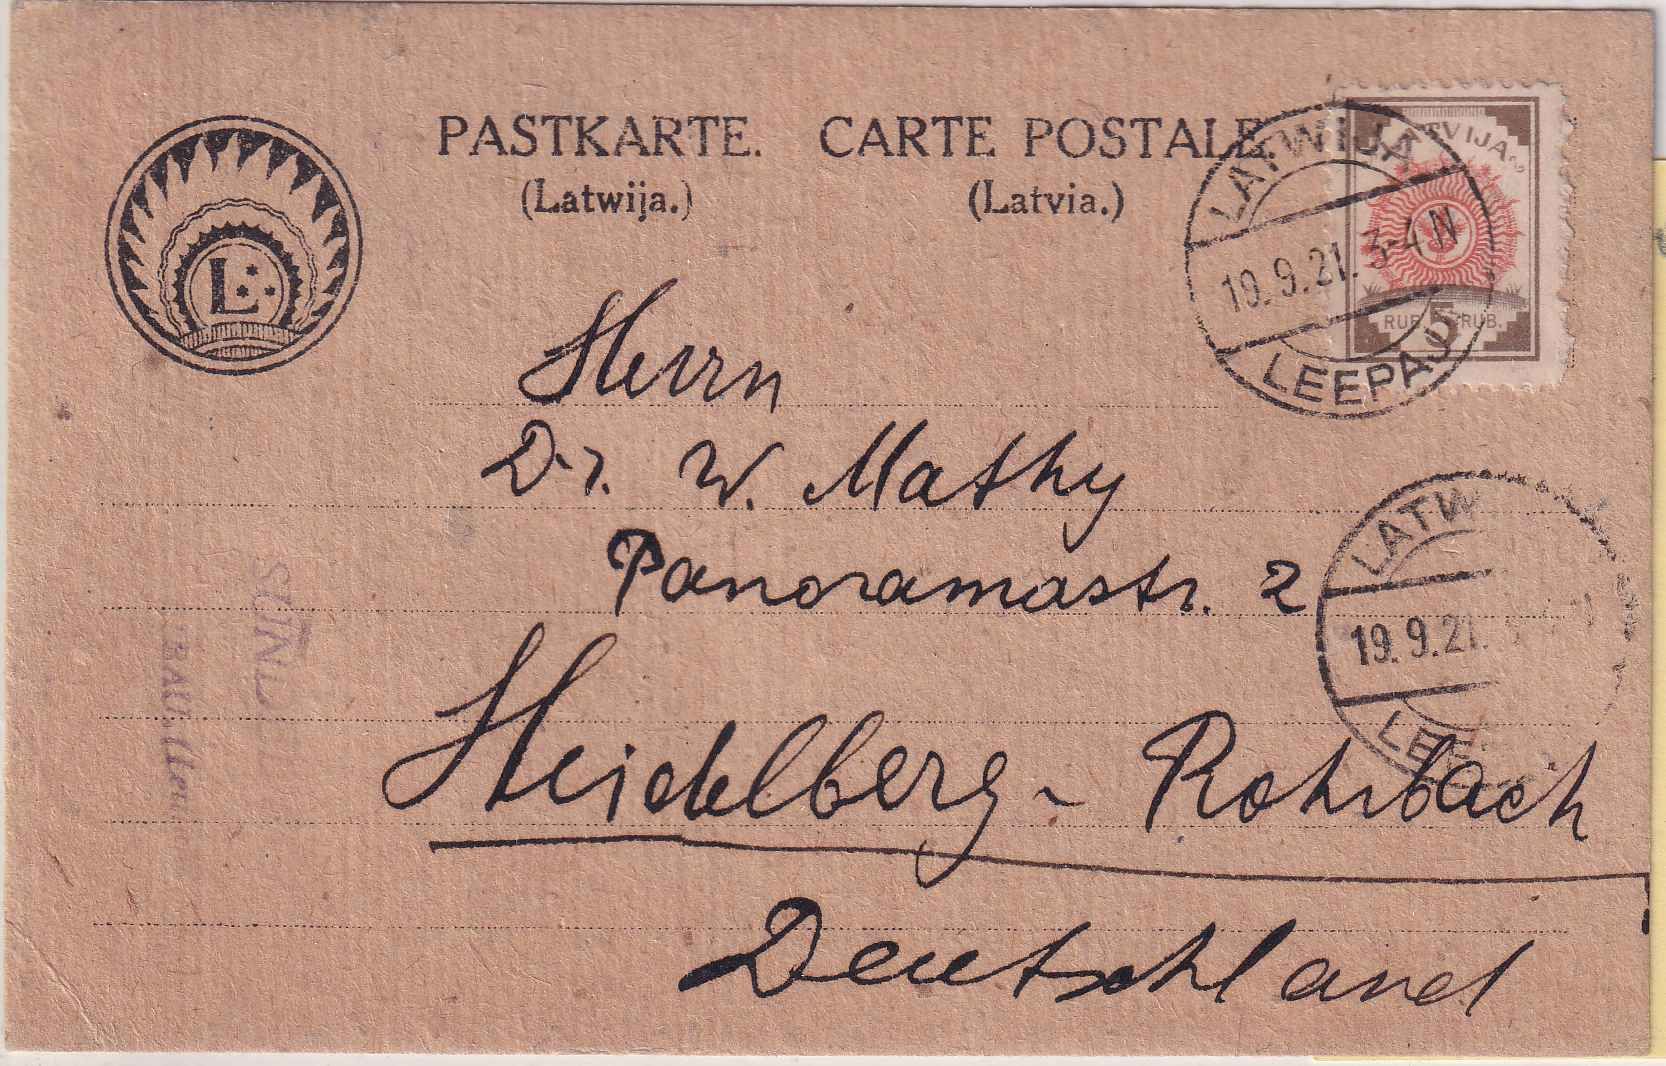 PASTKARTE. CARTE POSTALE.
(Latwija.) (Latvia.)
L
LATWIJA
19.9.21. 3-4 N
LEEPAJĀ
LATVIJA
RUB. 5 RUB.
Herrn
Dr. W. Mathy
Panoramastr. 2
Heidelberg - Rohrbach
Deutschland
LATW
19.9.21.
LEE